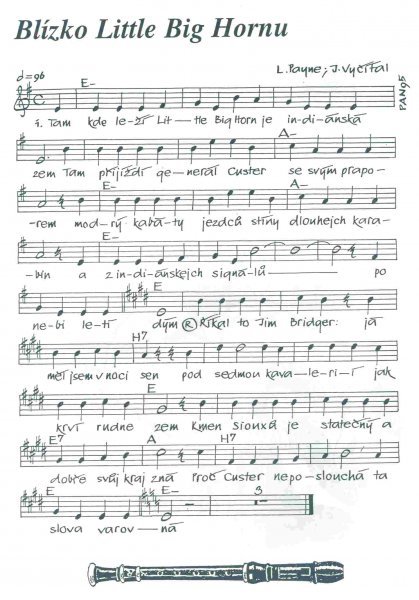 Blízko Little Big Hornu
L. Payne; J. Vyčítal
PAN95
♩=96
E-
1. Tam kde le-ží Lit-tle Big Horn je in-di-ánská
A-
zem Tam přijíždí ge-nerál Custer se svým prapo-
E-
rem mod-rý kabá-ty jezdců stíny dlouhejch kara-
A- E-
bin a z in-di-ánskejch signá-lů po
E
ne-bi le-tí dým ® Říkal to Jim Bridger: já
H7
měl jsem v noci sen pod sedmou kava-le-ri-í jak
E
krví rudne zem Kmen Siouxů je statečný a
E7 A H7
dobře svůj kraj zná Proč Custer nepo-slouchá ta
E E- 3
slova varov-ná